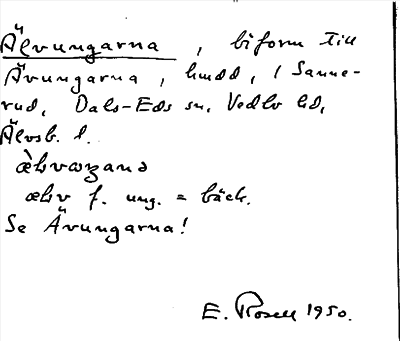 Älvungarna, biform till
Ävungarna, hmdd, i Sanne-
rud, Dals-Eds sn. Vedbo hd,
Älvsb. l.
ælv f. ung. = bäck.
Se Ävungarna!
E. Rosell 1950.